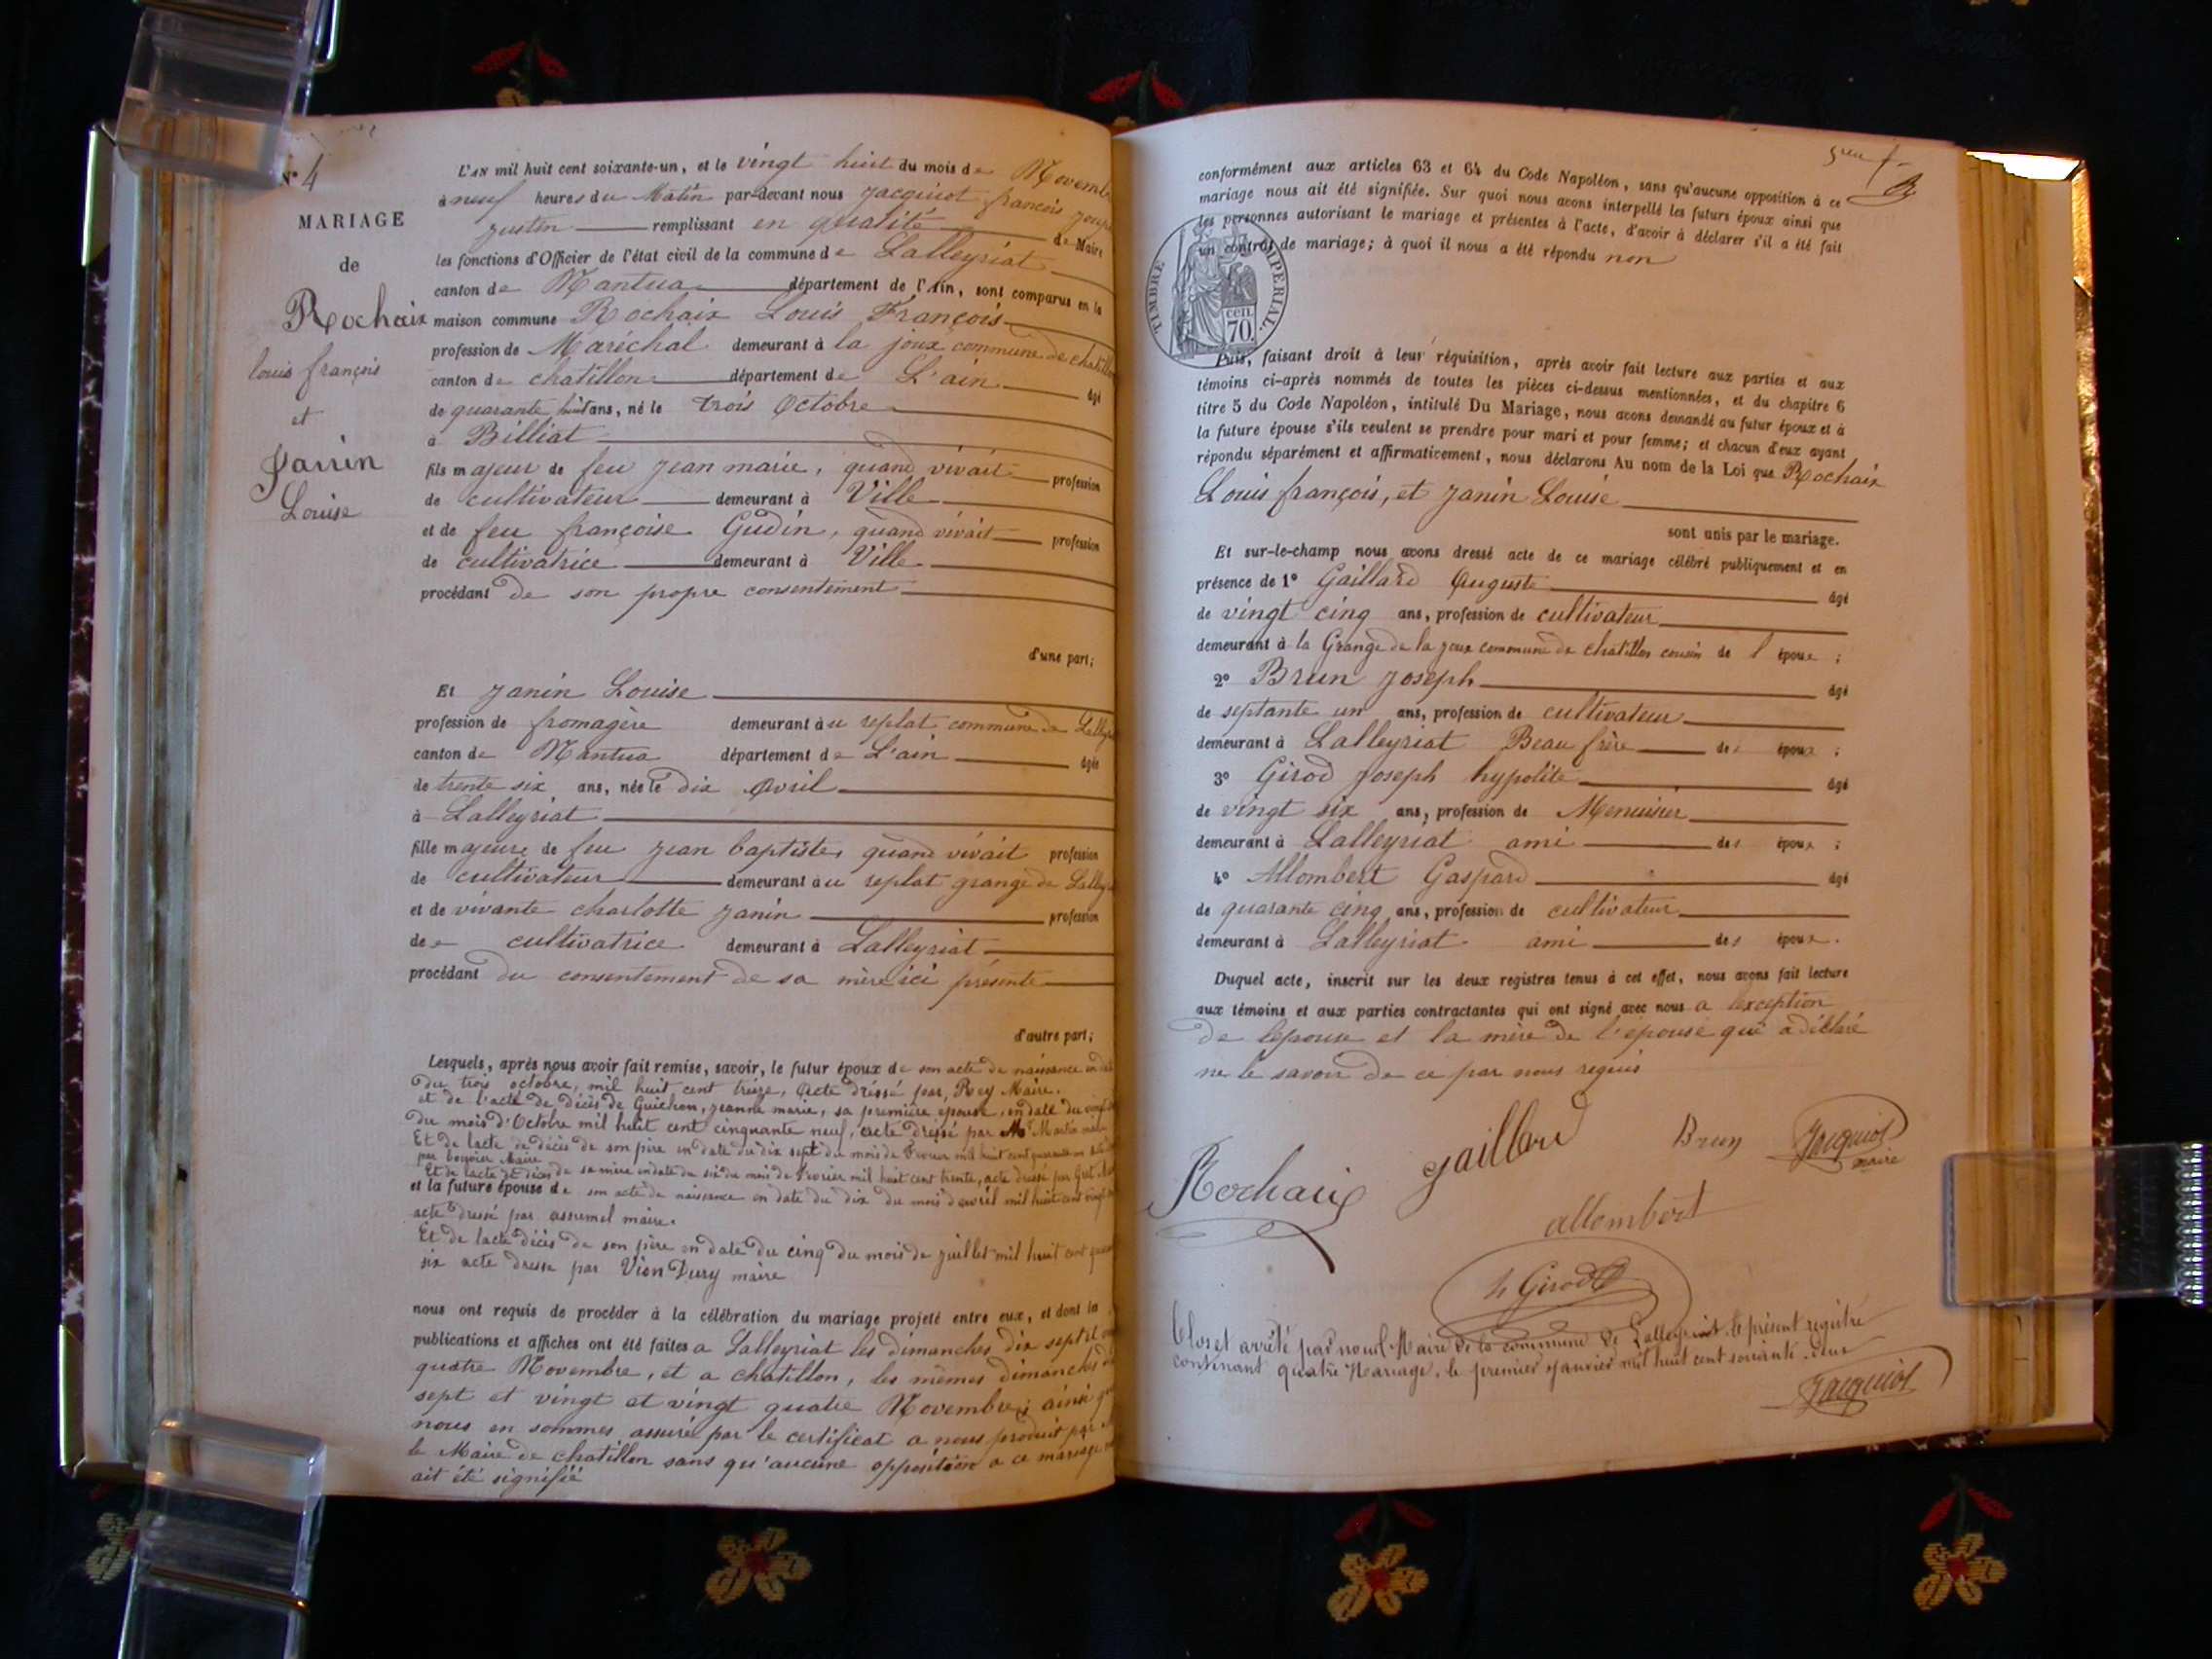 N° 4
MARIAGE
de
Rochaix
louis françois
et
Janin
Louise
L'AN mil huit cent soixante-un, et le vingt huit du mois de Novembre
à neuf heures du Matin par-devant nous Jacquiot françois
justin remplissant en qualité de Maire
les fonctions d'Officier de l'état civil de la commune de Lalleyriat
canton de Nantua département de l'Ain, sont comparus en la
maison commune Rochaix Louis François
profession de Maréchal demeurant à la joux commune de chatillon
canton de chatillon département de L'ain âgé
de quarante huit ans, né le trois Octobre
à Billiat
fils majeur de feu jean marie, quand vivait profession
de cultivateur demeurant à Ville
et de feu françoise Gudin, quand vivait profession
de cultivatrice demeurant à Ville
procédant de son propre consentement
d'une part;
Et Janin Louise
profession de fromagère demeurant à u replat commune de
canton de Nantua département de L'ain âgée
de trente six ans, née le dix Avril
à Lalleyriat
fille majeure de feu jean baptiste, quand vivait profession
de cultivateur demeurant à u replat grange de
et de vivante charlotte janin profession
de e cultivatrice demeurant à Lalleyriat
procédant du consentement de sa mère ici présente
d'autre part;
Lesquels, après nous avoir fait remise, savoir, le futur époux de son acte de naissance en
du trois octobre, mil huit cent treize, Acte dréssé par, Rey Maire.
et de l'acte de décès de Guichon, jeanne marie, sa première épouse, en date du
du mois d'Octobre mil huit cent cinquante neuf, acte dréssé par Mr Martin
Et de lacte de décès de son père en date du dix sept du mois de Fevrier mil huit cent
par Maire
Et de lacte de décès de sa mère en date du six du mois de Fevrier mil huit cent trente, acte dressé par
et la future épouse de son acte de naissance en date du dix du mois davril mil huit cent
acte dressé par assumel maire.
Et de lacte décès de son père en date du cinq du mois de juillet mil huit cent
six acte dresse par Vion Dury maire
nous ont requis de procéder à la célébration du mariage projeté entre eux, et dont la
publications et affiches ont été faites a Lalleyriat les dimanches dix sept et
quatre Novembre, et a chatillon, les mêmes dimanches
sept et vingt et vingt quatre Novembre; ainsi
nous en sommes assuré par le certificat a nous produit par
le Maire de chatillon sans qu'aucune opposition a ce mariage
ait été signifié
conformément aux articles 63 et 64 du Code Napoléon, sans qu'aucune opposition à ce
mariage nous ait été signifiée. Sur quoi nous avons interpellé les futurs époux ainsi que
les personnes autorisant le mariage et présentes à l'acte, d'avoir à déclarer s'il a été fait
un contrat de mariage; à quoi il nous a été répondu non
TIMBRE IMPERIAL.
cen.
70.
Puis, faisant droit à leur réquisition, après avoir fait lecture aux parties et aux
témoins ci-après nommés de toutes les pièces ci-dessus mentionnées, et du chapitre 6
titre 5 du Code Napoléon, intitulé Du Mariage, nous avons demandé au futur époux et à
la future épouse s'ils veulent se prendre pour mari et pour femme; et chacun d'eux ayant
répondu séparément et affirmativement, nous déclarons Au nom de la Loi que Rochaix
Louis françois, et Janin Louise
sont unis par le mariage.
Et sur-le-champ nous avons dressé acte de ce mariage célébré publiquement et en
présence de 1° Gaillard Auguste âgé
de vingt cinq ans, profession de cultivateur
demeurant à la Grange de la joux commune de chatillon cousin de l époux ;
2° Brun Joseph âgé
de septante un ans, profession de cultivateur
demeurant à Lalleyriat Beau frère des époux ;
3° Girod Joseph hypolite âgé
de vingt six ans, profession de Menuisier
demeurant à Lalleyriat ami des époux ;
4° Allombert Gaspard âgé
de quarante cinq ans, profession de cultivateur
demeurant à Lalleyriat ami des époux.
Duquel acte, inscrit sur les deux registres tenus à cet effet, nous avons fait lecture
aux témoins et aux parties contractantes qui ont signé avec nous a lexception
de lepouse et la mère de l'épouse qui a déclaré
ne le savoir de ce par nous requis
Rochaix gaillard Brun Jacquiot
maire
allombert
h Girod
Clos et arrêté par nous Maire de la commune de Lalleyriat le présent registre
contenant quatre Mariage, le premier janvier mil huit cent soixante deux
Jacquiot